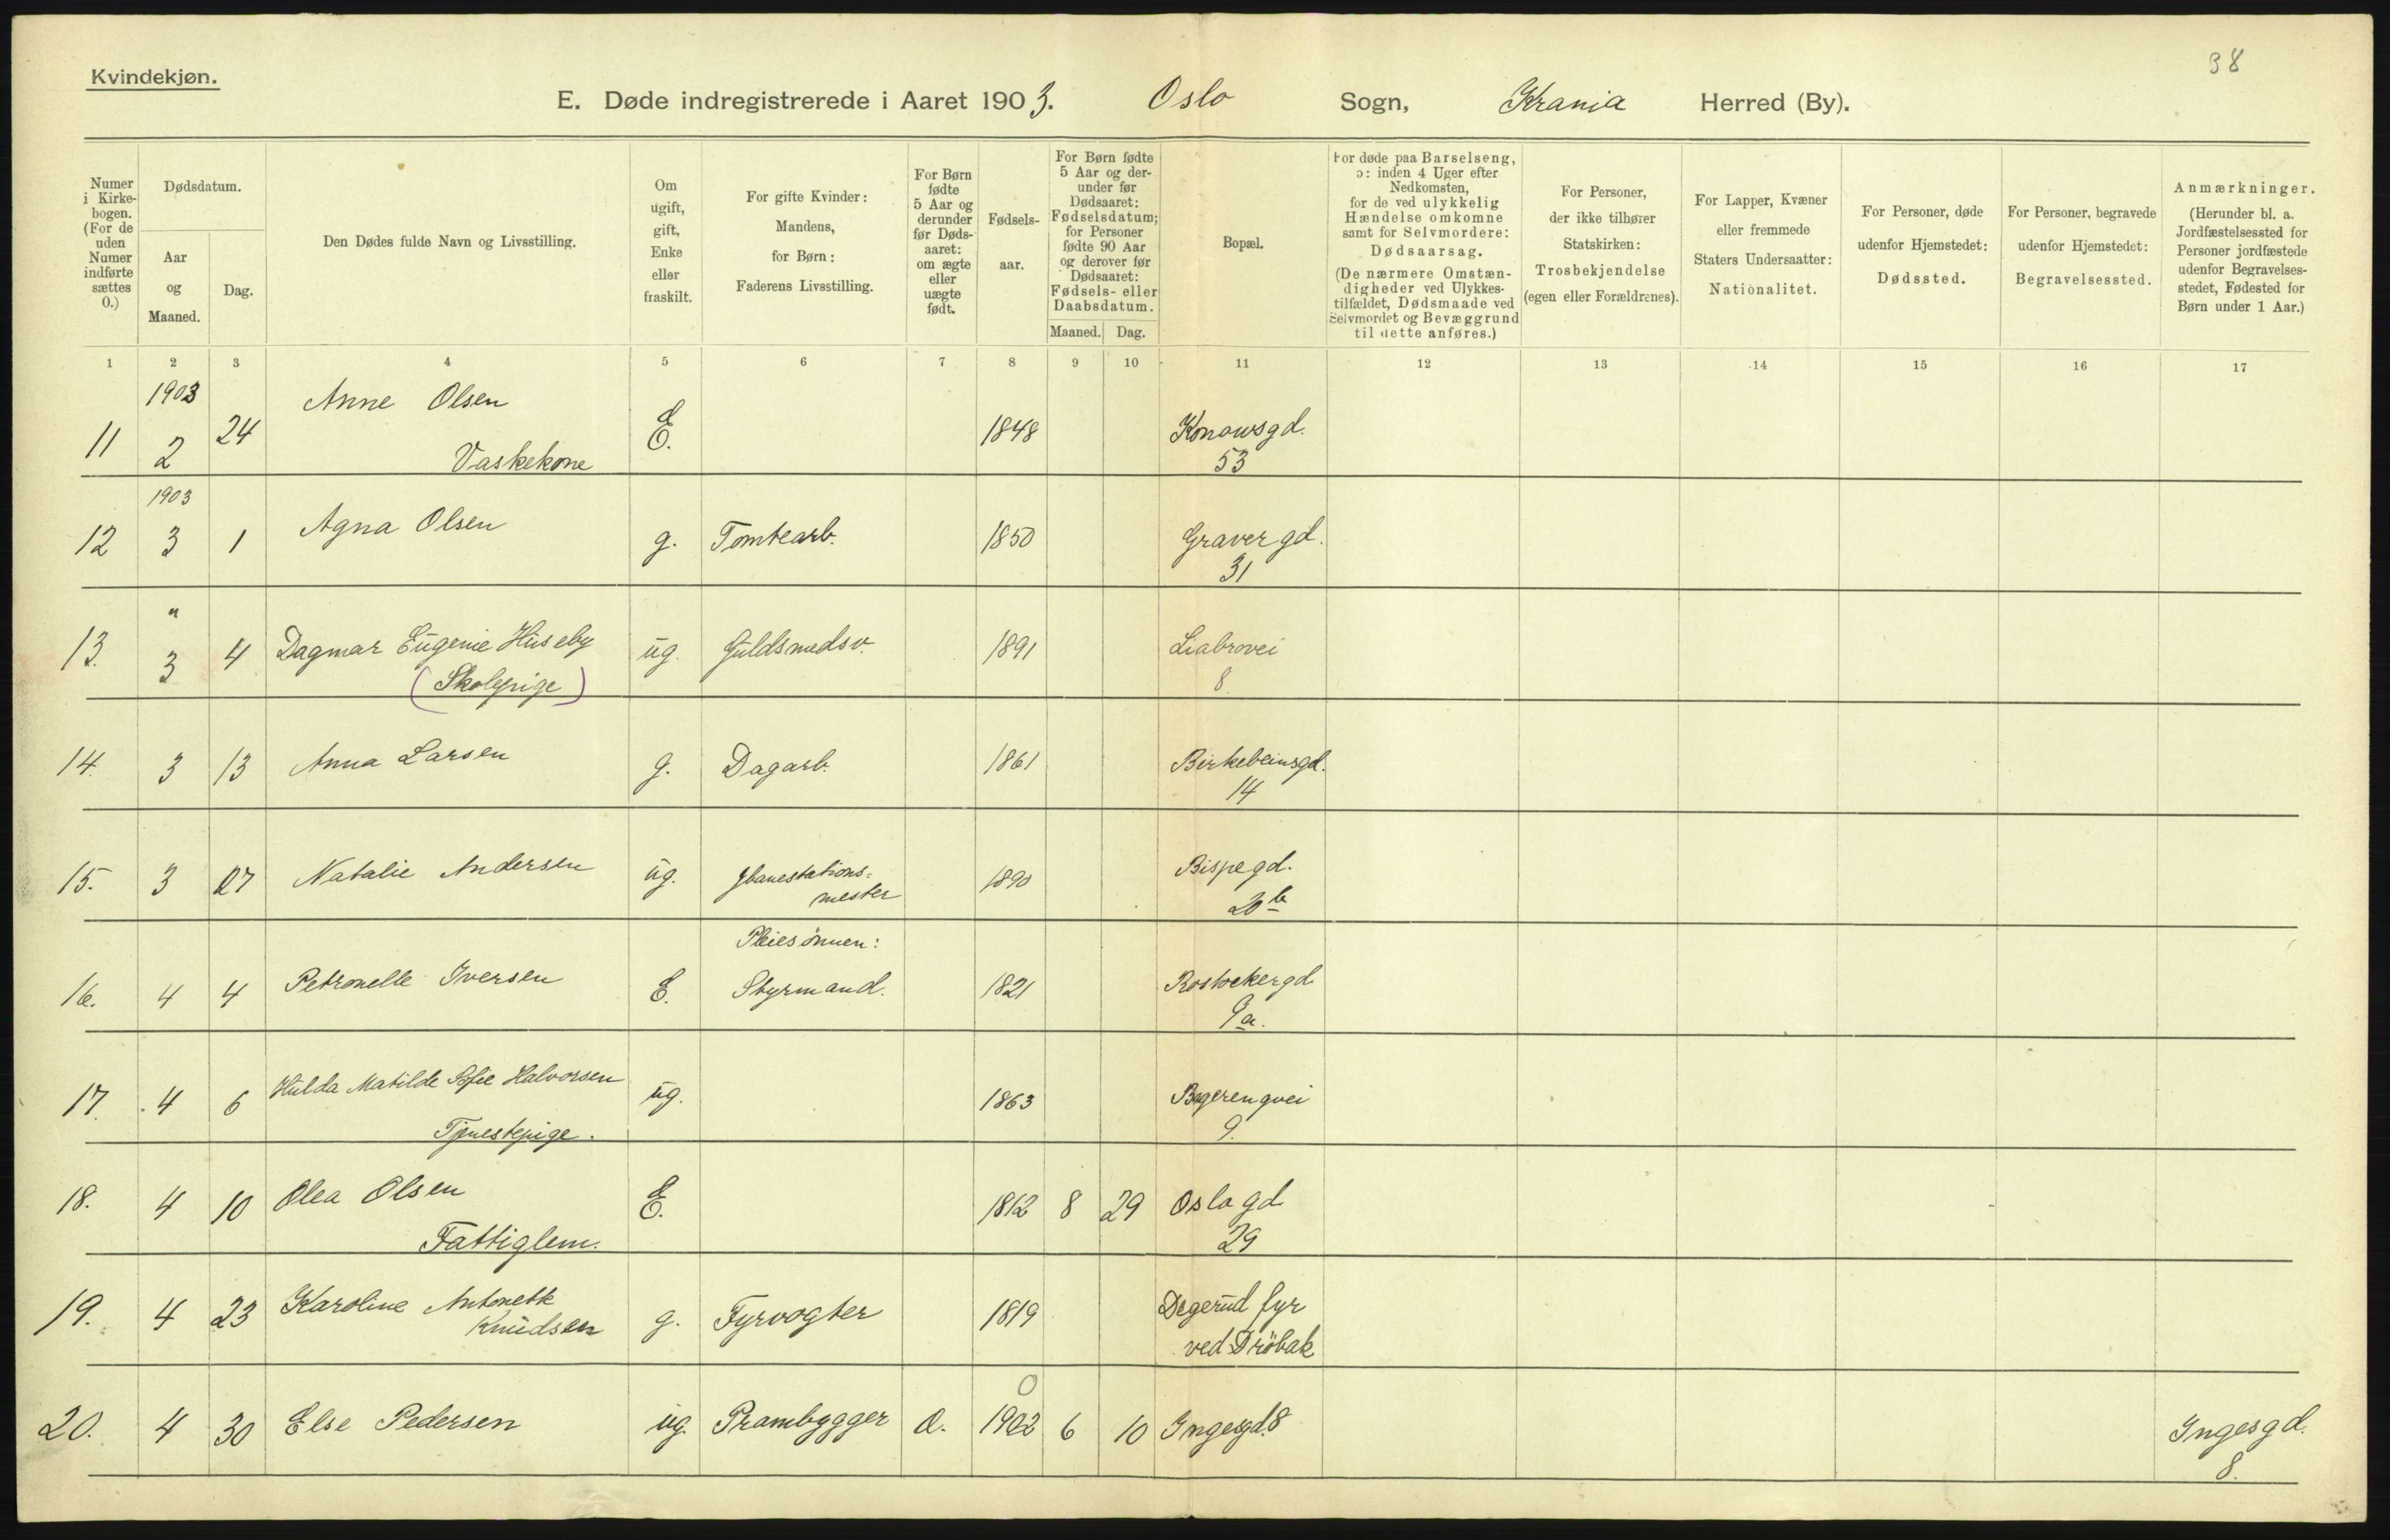 38
Kvindekjøn.
E. Døde indregistrerede i Aaret 1903. Oslo Sogn, Krania Herred (By).
Numer i Kirkebogen. (For de uden Numer indførte sættes 0.)
Dødsdatum.
Aar og Maaned.
Dag.
Den Dødes fulde Navn og Livsstilling.
Om ugift, gift, Enke eller fraskilt.
For gifte Kvinder: Mandens, for Børn: Faderens Livsstilling.
For Børn fødte 5 Aar og derunder før Dødsaaret: om ægte eller uægte født.
Fødselsaar.
For Børn fødte 5 Aar og derunder før Dødsaaret: Fødselsdatum; for Personer fødte 90 Aar og derover før Dødsaaret: Fødsels- eller Daabsdatum.
Maaned. Dag.
Bopæl.
For døde paa Barselseng, ɔ: inden 4 Uger efter Nedkomsten, for de ved ulykkelig Hændelse omkomne samt for Selvmordere: Dødsaarsag. (De nærmere Omstændigheder ved Ulykkestilfældet, Dødsmaade ved Selvmordet og Bevæggrund til dette anføres.)
For Personer, der ikke tilhører Statskirken: Trosbekjendelse (egen eller Forældrenes).
For Lapper, Kvæner eller fremmede Staters Undersaatter: Nationalitet.
For Personer, døde udenfor Hjemstedet: Dødssted.
For Personer, begravede udenfor Hjemstedet: Begravelsessted.
Anmærkninger. (Herunder bl. a. Jordfæstelsessted for Personer jordfæstede udenfor Begravelsesstedet, Fødested for Børn under 1 Aar.)
1 2 3 4 5 6 7 8 9 10 11 12 13 14 15 16 17
1903 Anne Olsen
11 2 24 E. 1848 Konowsgd.
Vaskekone 53
1903
12 3 1 Agna Olsen g. Tomtearb. 1850 Gravergd.
31
"
13. 3 4 Dagmar Eugenie Huseby ug. Guldsmedsv. 1891 Liabrovei
(Skolepige) 8.
14. 3 13 Anna Larsen g. Dagarb. 1861 Birkebeinsgd.
14
15. 3 27 Natalie Andersen ug. Jbanestations= 1890 Bispegd.
mester 20b
Pleiesønnen:
16. 4 4 Petronelle Iversen E. Styrmand. 1821 Rostockergd
9a.
17. 4 6 Hulda Matilde Sofie Halvorsen ug. 1863 Bøgerengvei
Tjenestepige. 9.
18. 4 10 Olea Olsen E. 1812 8 29 Oslogd
Fattiglem. 29
19. 4 23 Karoline Antonette g. Fyrvogter 1819 Degerud fyr
Knudsen ved Dröbak
0
20. 4 30 Else Pedersen ug. Prambygger a. 1902 6 10 Ingesgd.8 Ingesgd.
8.